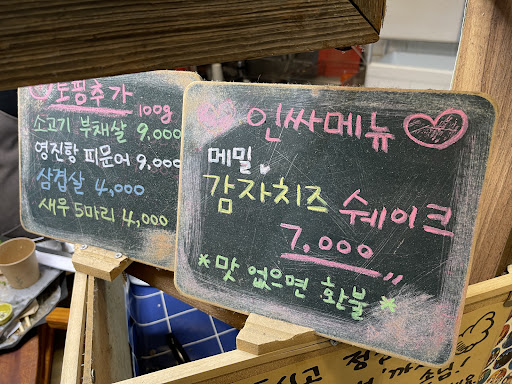 토핑추가
100g
소고기 부채살 9,000
영진항 피문어 9,000
삼겹살 4,000
새우 5마리 4,000
인싸메뉴
메밀
감자치즈 쉐이크
7,000
*맛 없으면 환불*